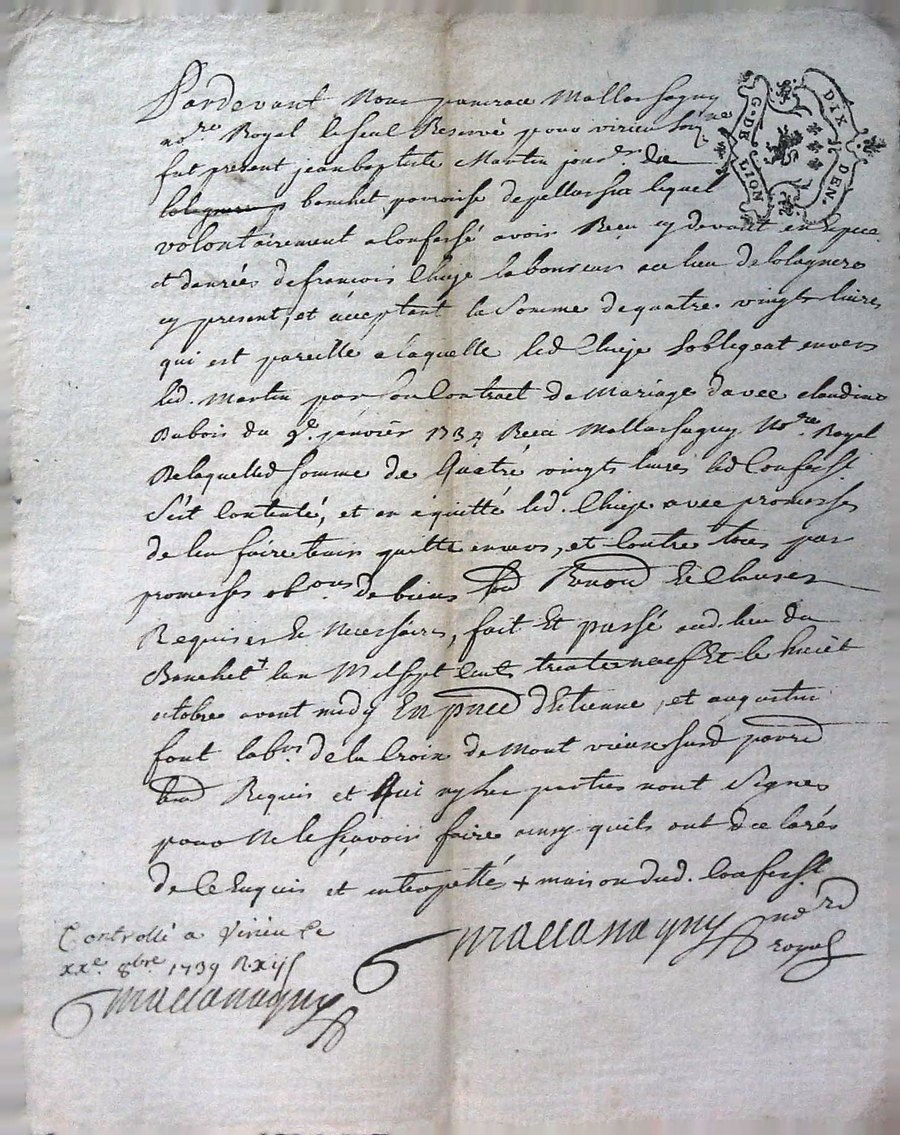 G. DE LION
DIX DEN.
Pardevant Nous pancrace Mallassagny
no.re Royal le seul Reservé pour virieu soub.ne
fut present jean baptiste Martin jour.r du
bouchet paroisse de pellassur lequel
volontairement a Confessé avoir Receu cy devant en Espece
et danrées de francois Chieze laboureur au lieu de
cy present, et acceptant la Somme de quatre vingts livres
qui est pareille a laquelle led Chieze sobligeat envers
led. Martin par son Contract de Mariage davec claudine
Dubois du 9.e janvier 1734 Receu Mallassagny No.re Royal
De laquelled somme de Quatre vingts livres led Confess.t
s'Est Contenté, et en a quitté led. Chieze avec promesses
de len faire tenir quitte envers, et Contre tous par
promesses ob.ons de biens Renon.d Et Clauses
Requises Et Necessaires, fait Et passé aud. lieu du
Bouchet + lan Mil sept Cents trente neuf Et le huict
octobre avant midy En pnce d'Etienne, et augustin
font lab.rs de la Croix de Mont vieux sund parr.e
Requis et Qui ny les parties nont Signes
pour Ne le sçavoir faire ainsy quils ont declarés
de Ce Enquis et interpellés + maison dud. Confess.t
no.re
royal
Controllé a Virieu le
xx.e 8bre 1739 R. xijs